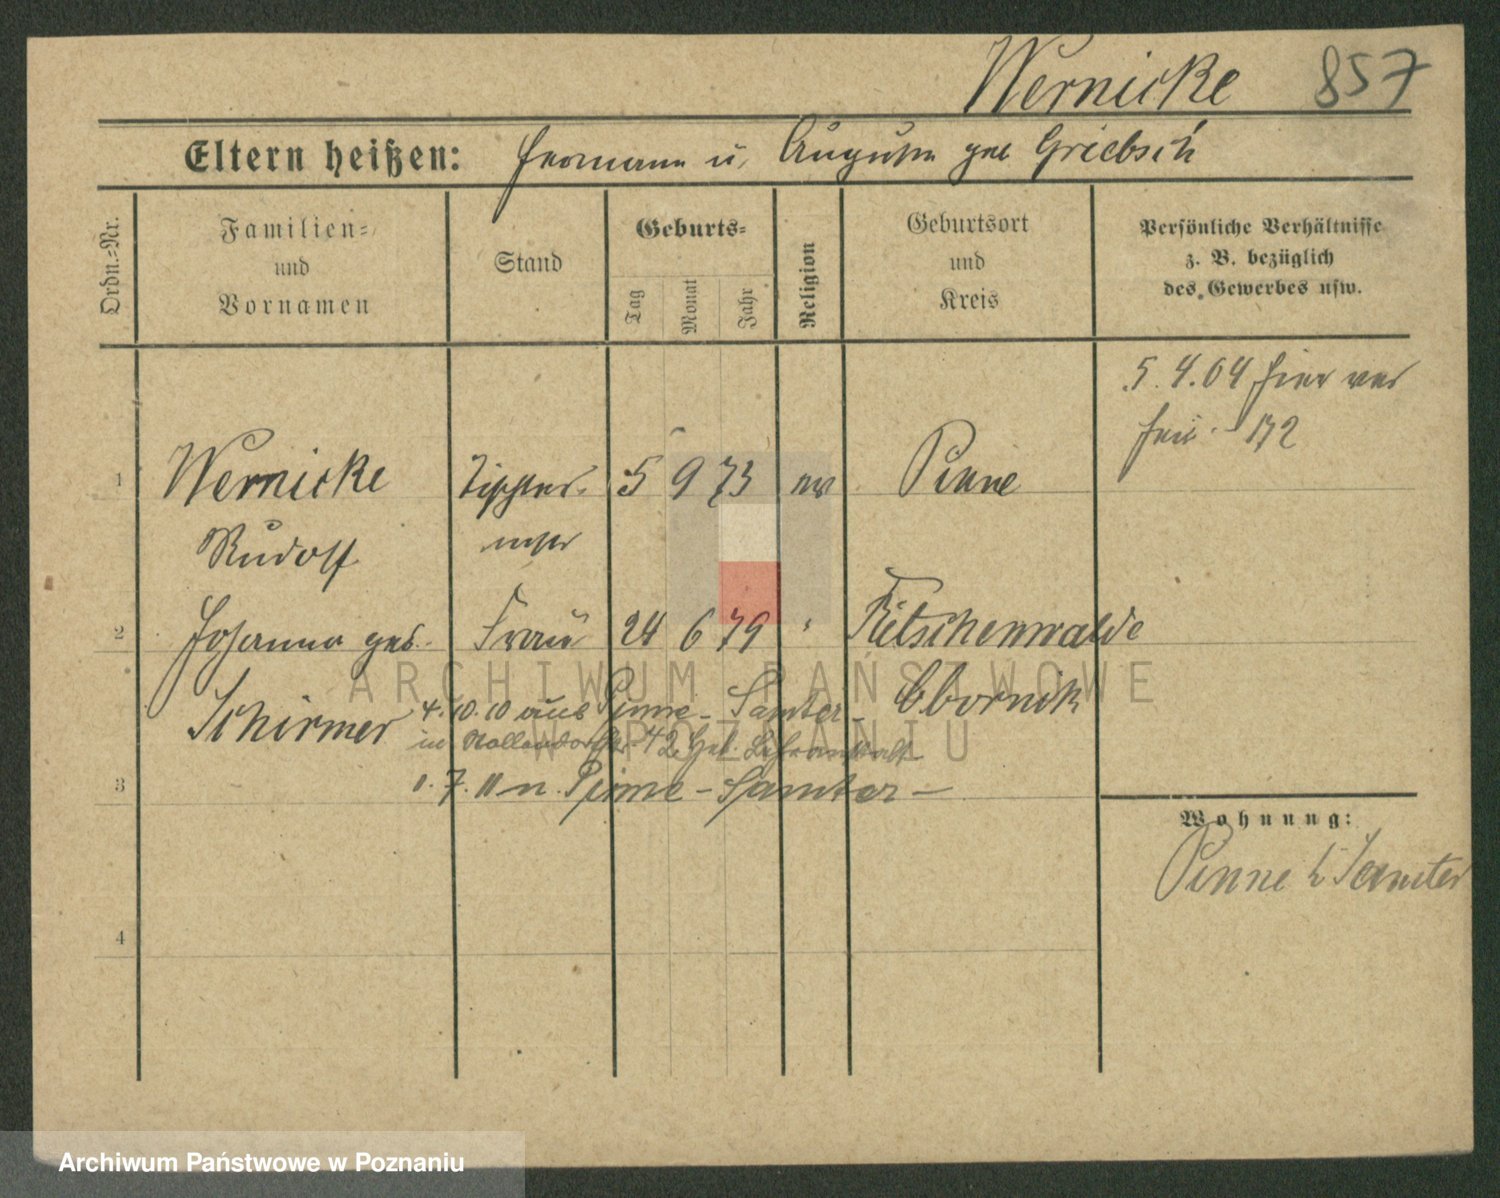 Wernicke 857
Eltern heißen: Hermann u. Auguste geb Griebsch
Ordn.-Nr.
Familien-
und
Vornamen
Stand
Geburts-
Tag
Monat
Jahr
Religion
Geburtsort
und
Kreis
Persönliche Verhältnisse
z. B. bezüglich
des Gewerbes usw.
5.4.04 hier ver
172
1 Wernicke Tischler- 5 9 73 ev Pinne
Rudolf meister
2 Johanna geb. Frau 24 6 79 " Ritschenwalde
Schirmer 4.10.10 aus Pinne - Samter - Obornik
in Nollendorfstr. 42
3 1.7.11 n. Pinne - Samter -
Wohnung:
Pinne b Samter
4
ARCHIWUM PAŃSTWOWE
W POZNANIU
Archiwum Państwowe w Poznaniu